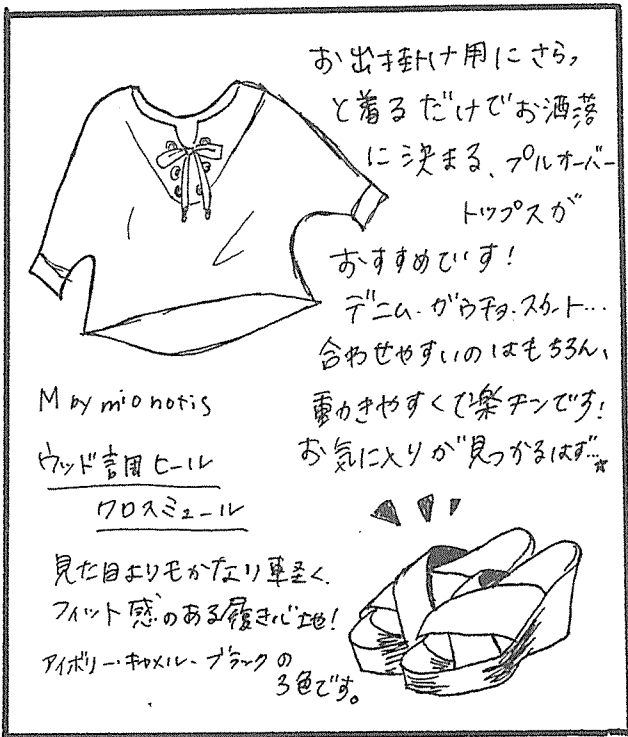 お出掛け用にさらっ
と着るだけでお洒落
に決まる、プルオーバー
トップスが
おすすめでいす!
デニム・ガウチョ・スカート…
合わせやすいのはもちろん、
動きやすくて楽チンです!
お気に入りが見つかるはず…☆
M by mionotis
ウッド調ヒール
クロスミュール
見た目よりもかなり軽く、
フィット感のある履き心地!
アイボリー・キャメル・ブラックの
3色です。